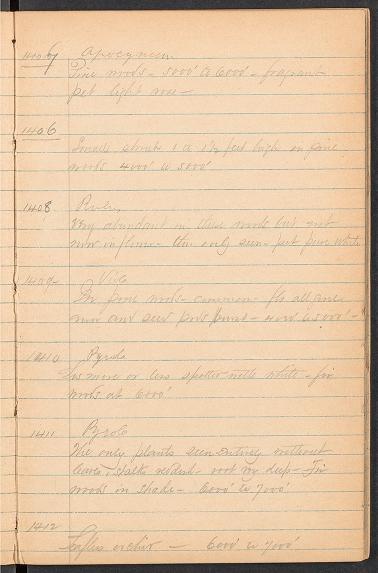 1407 Apocynum
Pine woods - 5000' to 6000' - fragrant
pet light rose -
1406
Small shrub 1 to 1½ feet high in pine
woods 4000' to 5000'
1408
Very abundant in these woods but not
now in flower - the only seen - pet pure white
1409 Vicia
In pine woods - common - fls all gone
now and seed pods - 4000' to 5000' -
1410 Pyrola
Lvs more or less spotted with white - fir
woods at 6000'
1411 Pyrola
The only plants seen entirely without
leaves. Stalks reddish - root very deep - Fir
woods in shade - 6000' to 7000'
1412
Leafless orchid - 6000' to 7000'